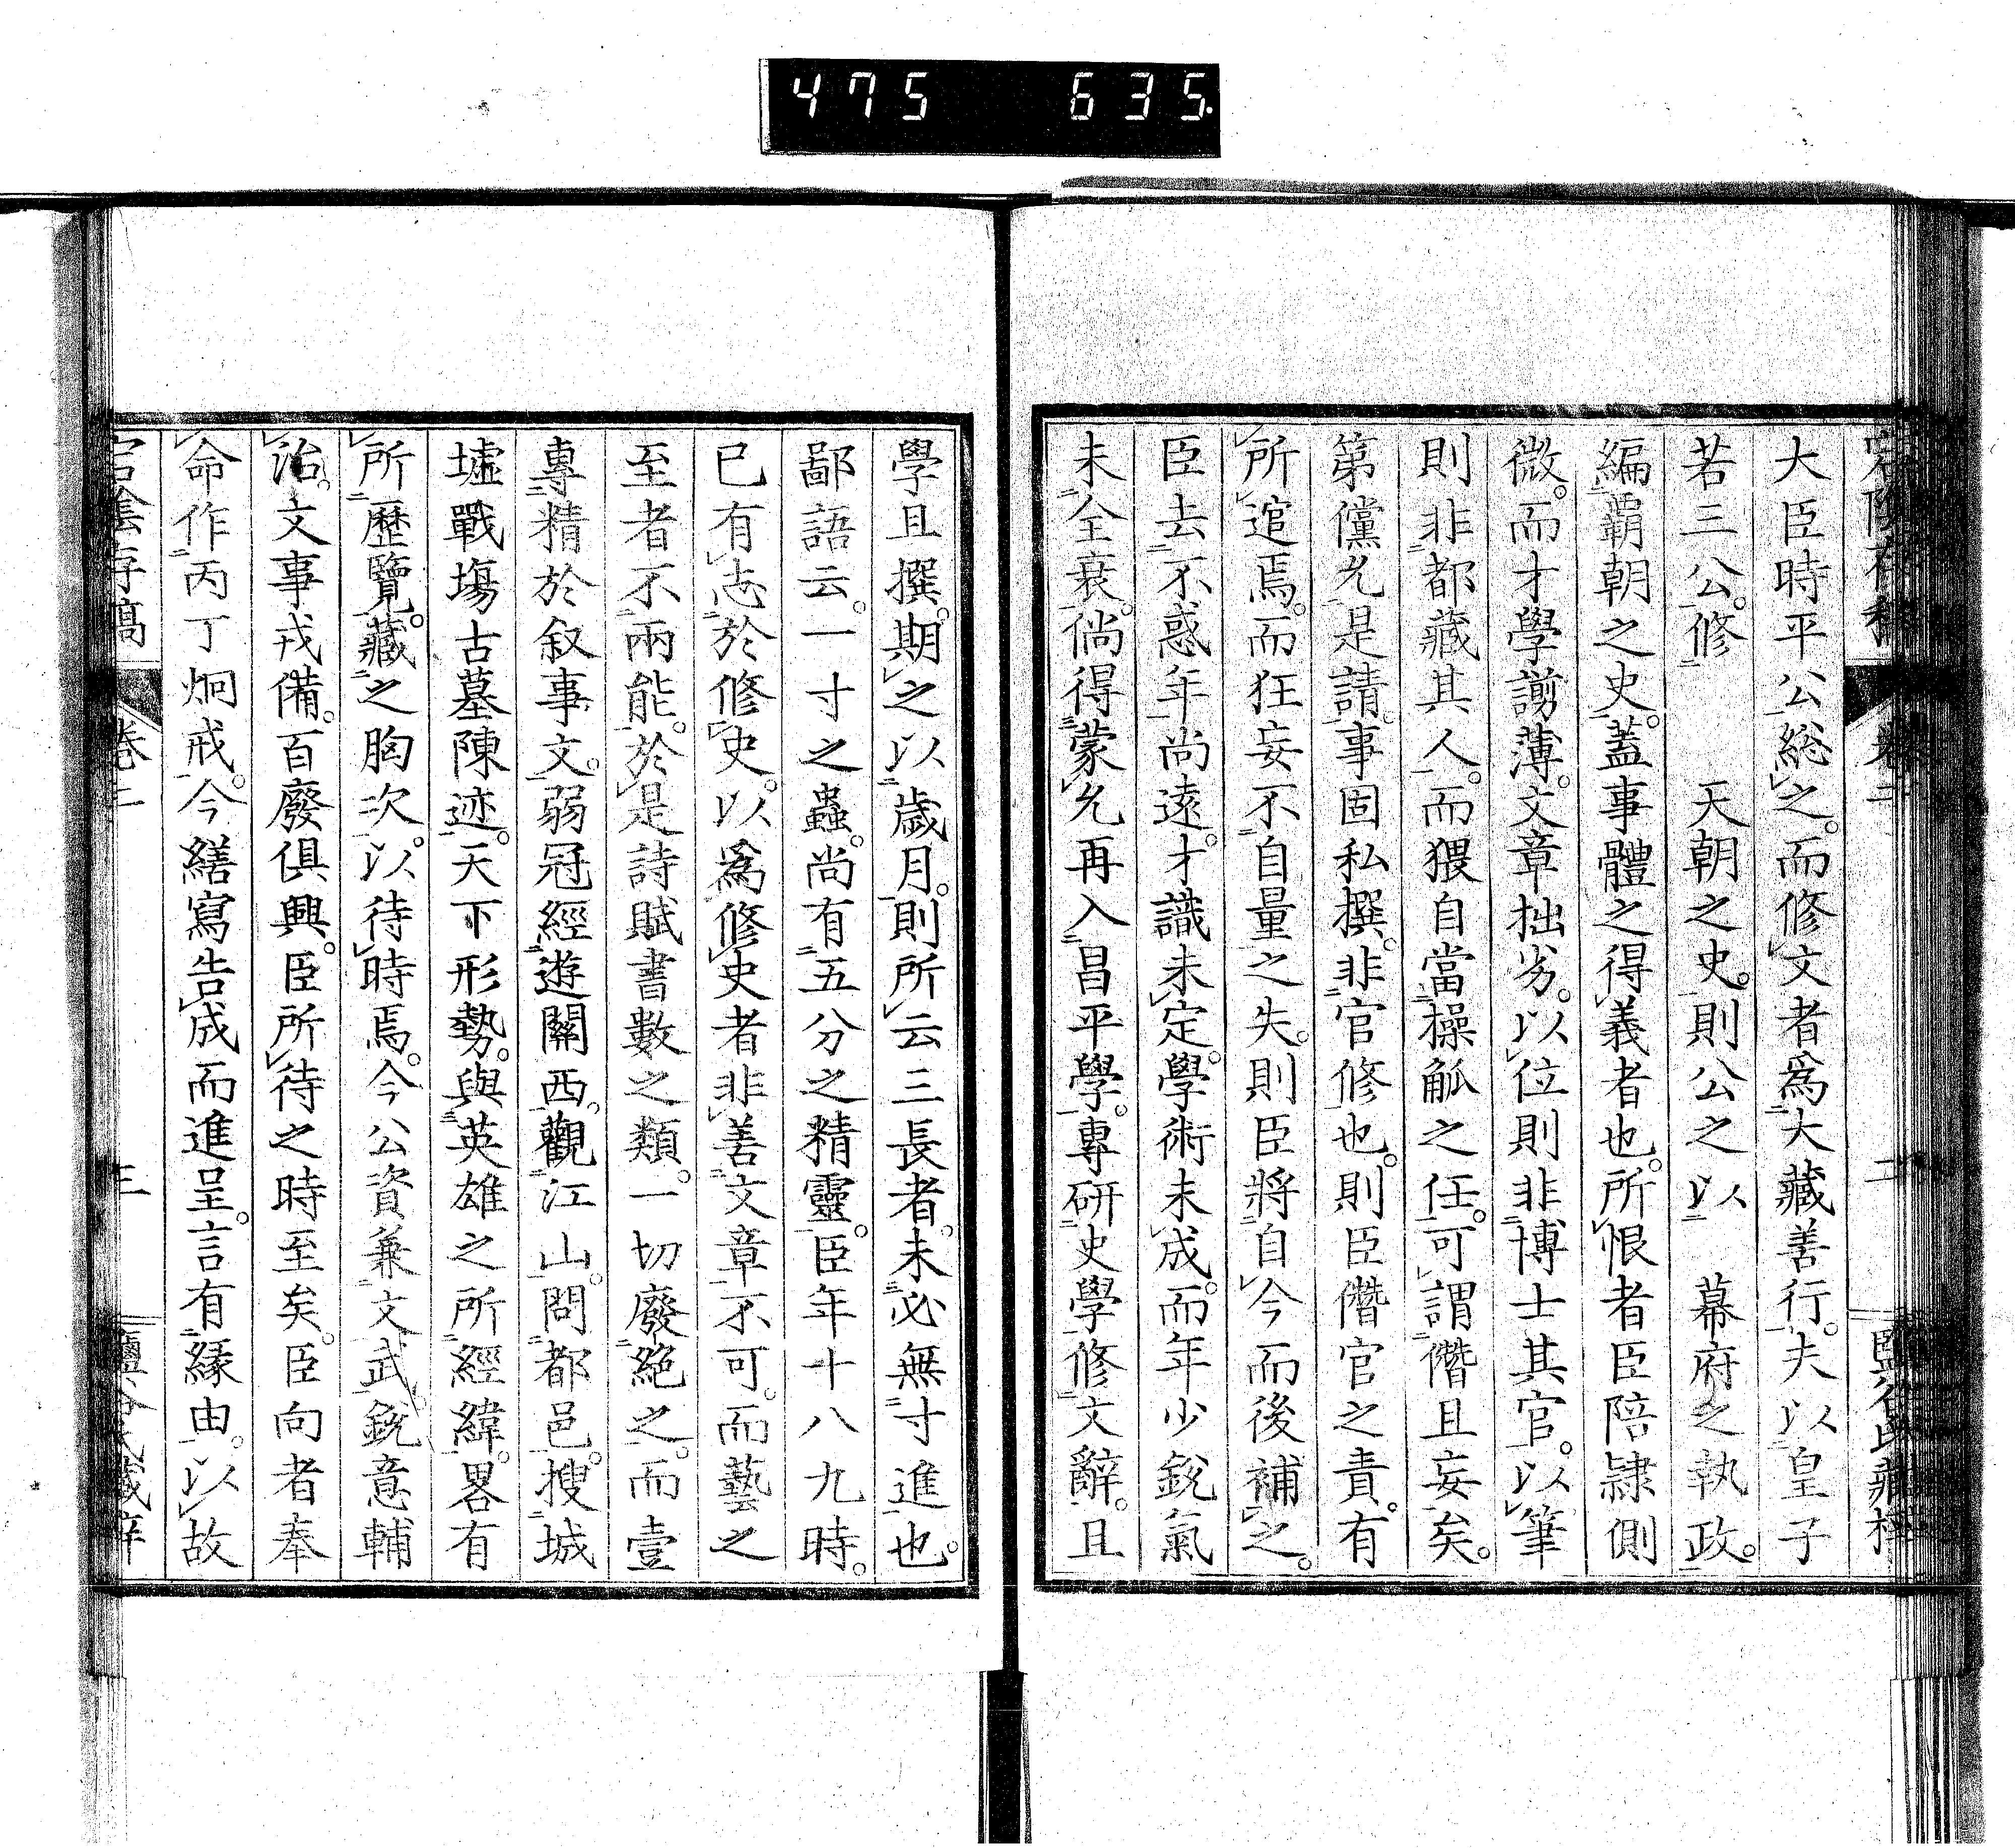 475 635
大臣時平公総之。而修文者爲大藏善行。夫以皇子
若三公。修 天朝之史。則公之以 幕府之執政。
編覇朝之史。蓋事體之得義者也。所恨者臣陪隷側
微。而才學謭薄。文章拙劣。以位則非博士其官。以筆
則非都藏其人。而猥自當操觚之任。可謂僭且妄矣。
第儻允是請。事固私撰。非官修也。則臣僭官之責。有
所逭焉。而狂妄不自量之失。則臣將自今而後補之。
臣去不惑年尚遠。才識未定。學術未成。而年少鋭氣
未全衰。倘得蒙允再入昌平學。專研史學。修文辭。且
學且撰。期之以歳月。則所云三長者。未必無寸進也。
鄙語云。一寸之蟲。尚有五分之精靈。臣年十八九時。
已有志於修史。以爲修史者非善文章不可。而藝之
至者不兩能。於是詩賦書數之類。一切廢絶之。而壹
專精於叙事文。弱冠經遊關西。觀江山。問都邑。搜城
墟戰塲古墓陳迹。天下形勢。與英雄之所經緯。畧有
所歷覽。藏之胸次。以待時焉。今公資兼文武。鋭意輔
治。文事戎備。百廢俱興。臣所待之時至矣。臣向者奉
命作丙丁炯戒。今繕寫告成而進呈。言有縁由。以故